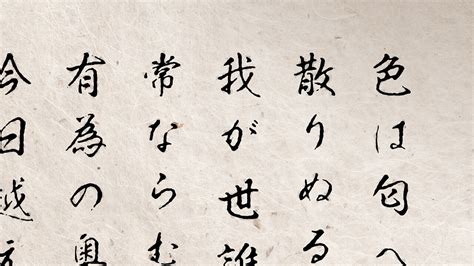 色は匂へ
散りぬる
我が世誰
常ならむ
有為の奥
今日越え